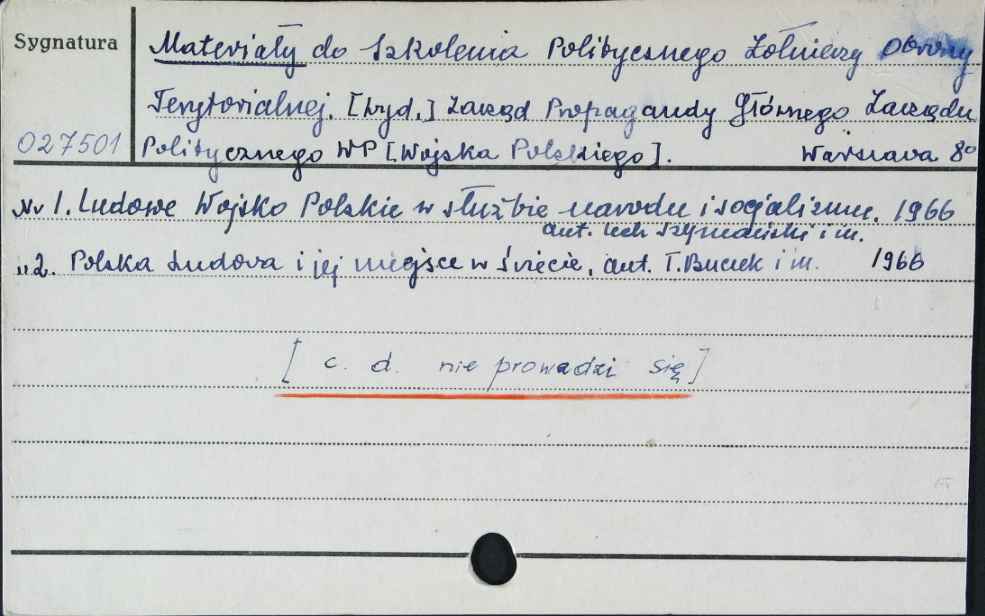 Sygnatura
Materiały do Szkolenia Politycznego Żołnierzy Obrony
Terytorialnej. [Wyd.] Zarząd Propagandy Głównego Zarządu
027501
Politycznego WP [Wojska Polskiego]. Warszawa 8°
Nr 1. Ludowe Wojsko Polskie w służbie narodu i socjalizmu. 1966
aut. Lech Szymański i in.
„ 2. Polska Ludowa i jej miejsce w świecie, aut. T. Buczek i in. 1966
[c. d. nie prowadzi się]